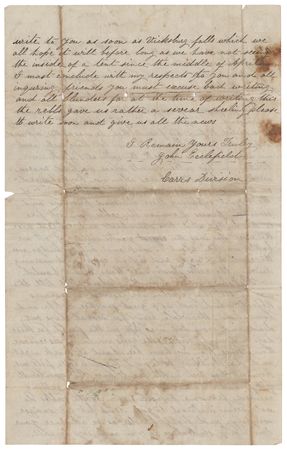 write to you as soon as Vicksburg falls which we
all hope it will before long as we have not seen
the inside of a tent since the middle of April
I must conclude with my respects to you and all
inquiring friends you must excuse bad writing
and all blunders for at the time of writing this
the rebls gave us a severe sheling please
to write soon and give us all the news
I Remain Yours Truly
John
Carrs Division